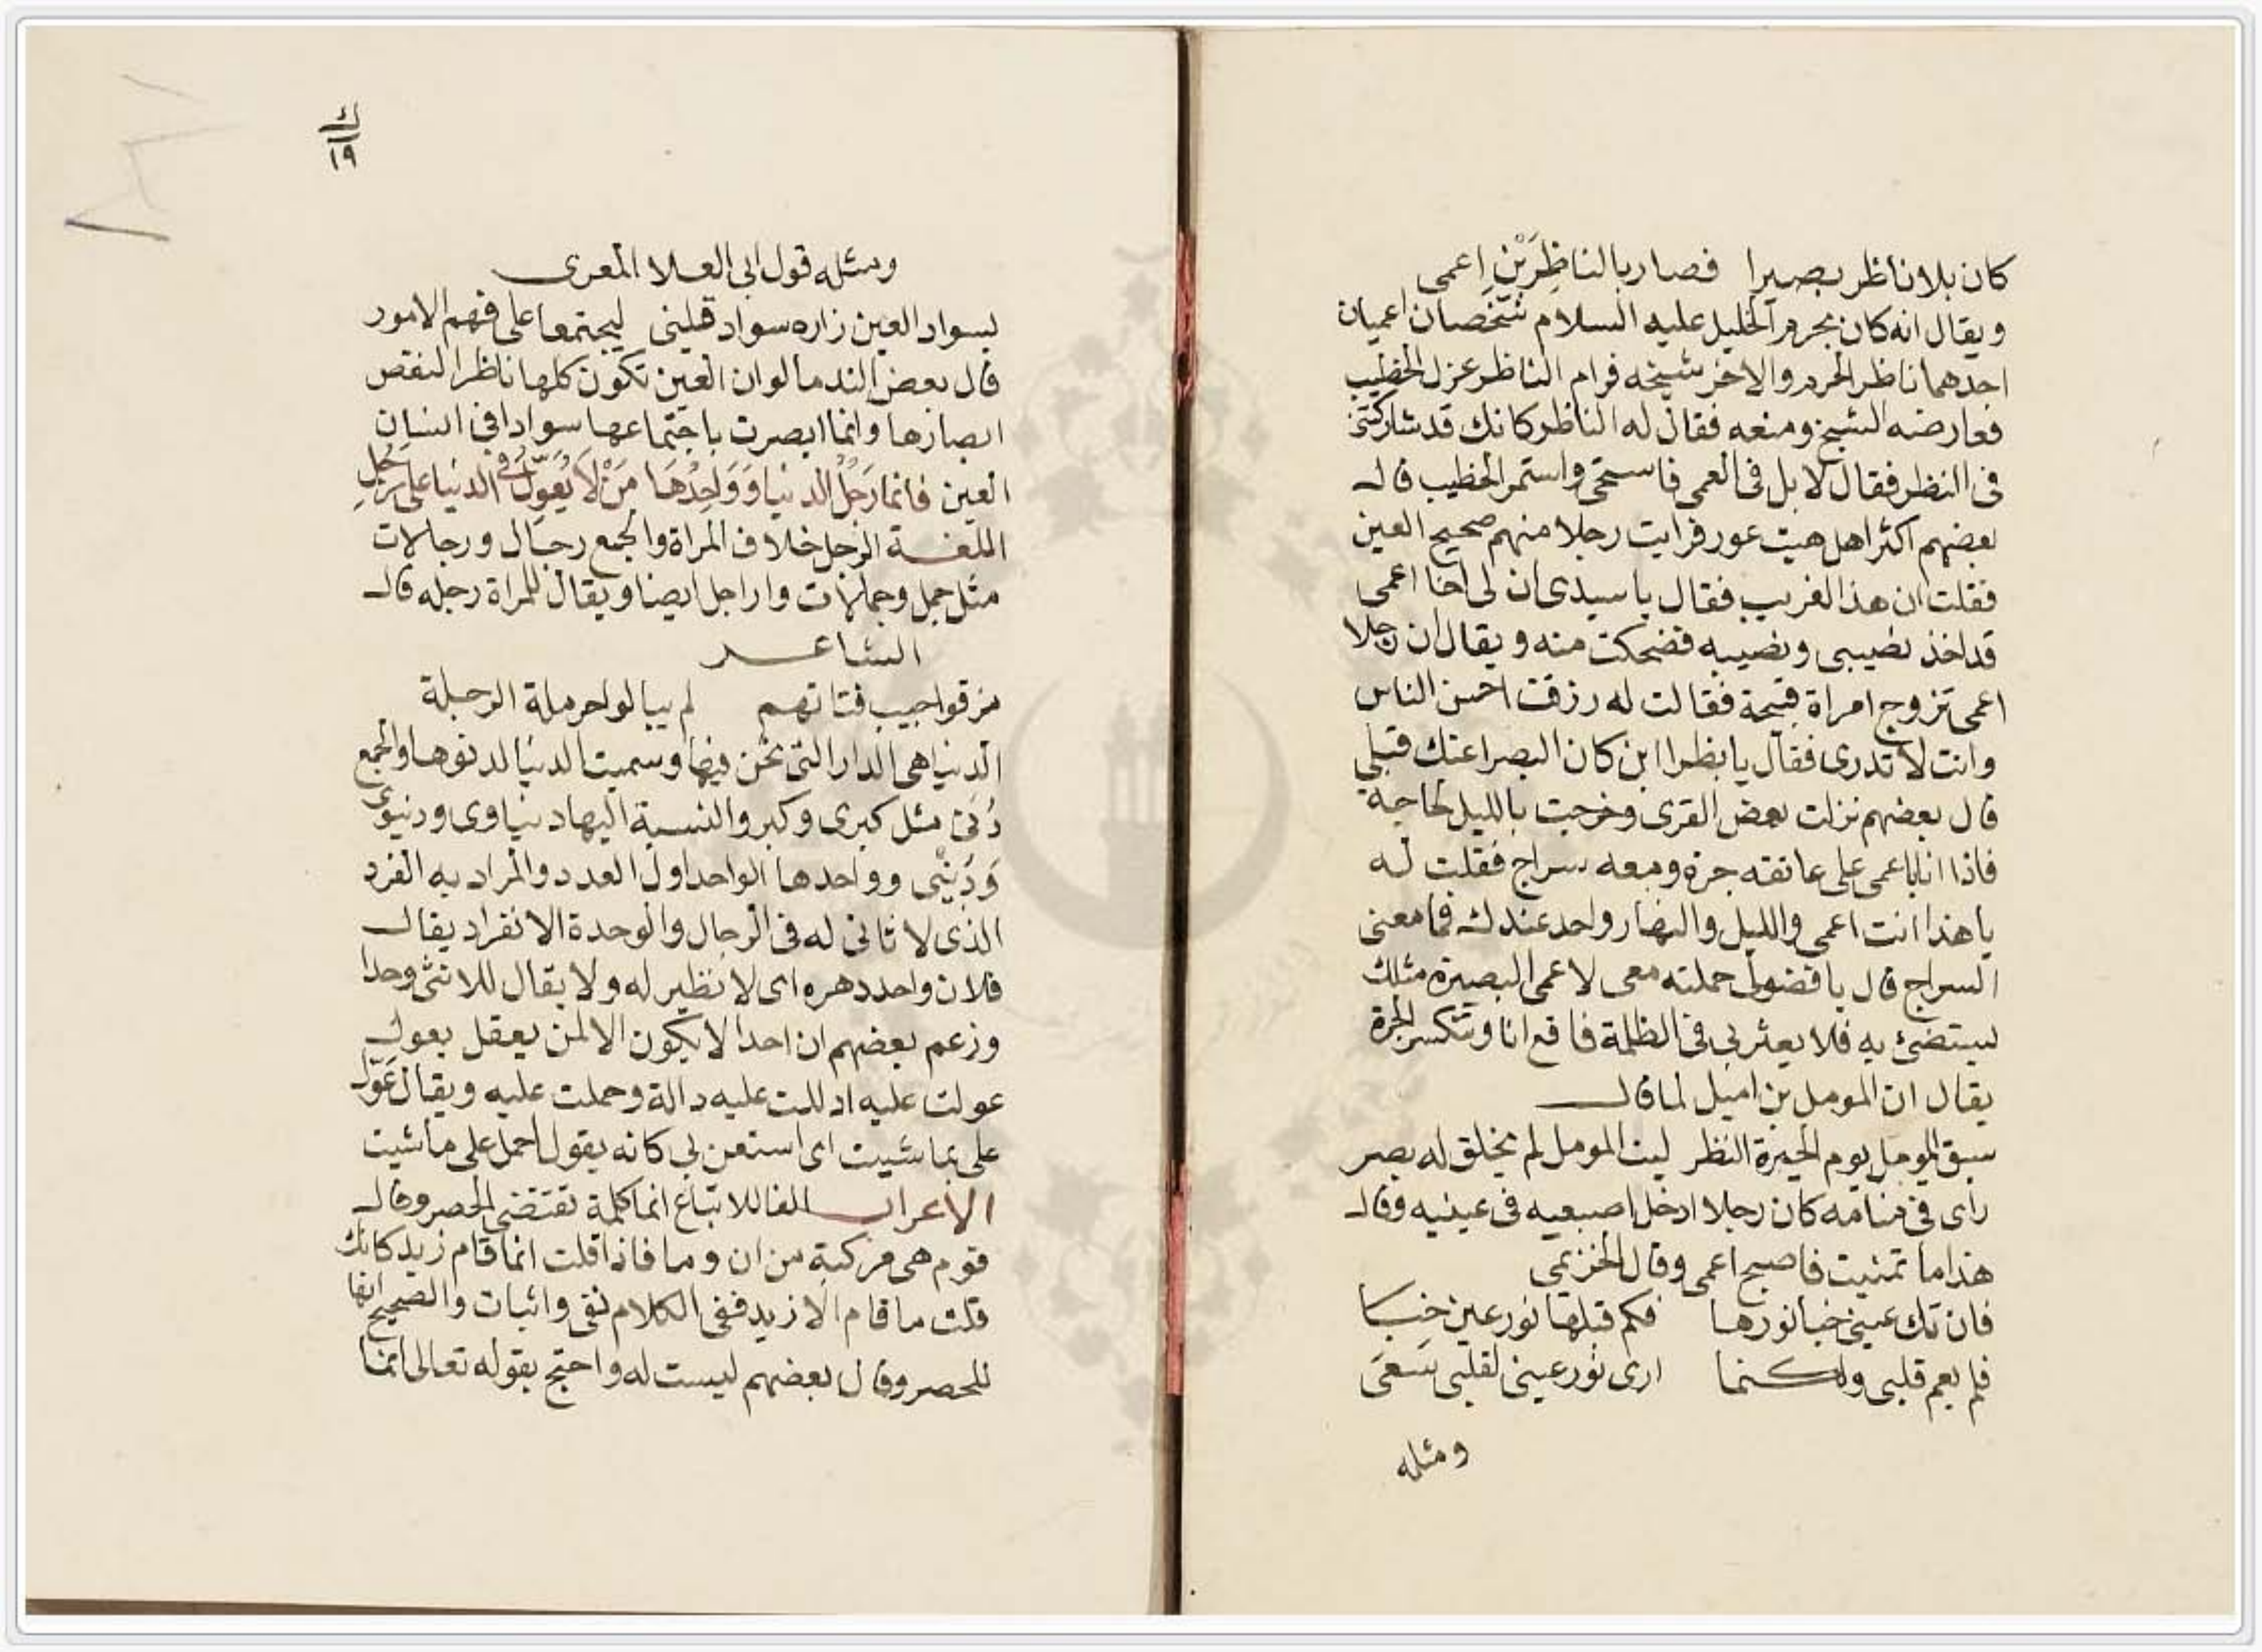 كان بلا ناظر بصيرا فصار بالناظِرَيْنِ اعمى
ويقال انه كان بحرم الخليل عليه السلام شخصان اعميان
احدهما ناظر الحرم والاخر شيخه فرام الناظر عزل الخطيب
فعارضه الشيخ ومنعه فقال له الناظر كانك قد شاركتنى
فى النظر فقال لا بل فى العمى فاستحى واستمر الخطيب قال
بعضهم اكثر اهل هيت عور فرايت رجلا منهم صحيح العين
فقلت ان هذا الغريب فقال يا سيدى ان لى اخا اعمى
قد اخذ نصيبى ونصيبه فضحكت منه ويقال ان رجلا
اعمى تزوج امراة قبيحة فقالت له رزقت احسن الناس
وانت لا تدرى فقال يا بظرا اين كان البصرا عنك قبلي
قال بعضهم نزلت بعض القرى وخرجت بالليل لحاجة
فاذا انا باعمى على عاتقه جرة ومعه سراج فقلت له
يا هذا انت اعمى والليل والنهار واحد عندك فما معنى
السراج قال يا فضولى حملته معى لاعمى البصيرة مثلك
ليستضئ به فلا يعثر بى فى الظلمة فاقع انا وتنكسر الجرة
يقال ان المومل بن اميل لما قال
سبق المومل يوم الحيرة النظر ليت المومل لم يخلق له بصر
راى فى منامه كان رجلا ادخل اصبعيه فى عينيه وقال
هذا ما تمنيت فاصبح اعمى وقال الخزيمى
فان تك عينى خبا نورها فكم قبلها نور عين خبا
فلم يعم قلبى ولكنما ارى نور عينى لقلبى سَعَى
ومثله
١٩
ومثله قول ابى العلا المعرى
سواد العين زاره سواد قلبى ليجتمعا على فهم الامور
قال بعض الندما لو ان العين تكون كلها ناظرا لنقص
ابصارها وانما ابصرت باجتماعها سوادا فى انسان
العين فانما رَجُلُ الدنيا وَوَاحِدُهَا مَنْ لَا يُعَوِّلُ فى الدنيا على رَجُلِ
اللغة الرجل خلاف المراة والجمع رجال ورجالات
مثل جمل وجمالات واراجل ايضا ويقال للمراة رجله قال
الشاعر
مزقوا جيب فتاتهم لم يبالوا حرملة الرجلة
الدنيا هى الدار التى نحن فيها وسميت الدنيا لدنوها والجمع
دُنى مثل كبرى وكبر والنسبة اليها دنياوى ودنيوى
وَدُنْيِى وواحدها الواحد اول العدد والمراد به الفرد
الذى لا ثانى له فى الرجال والوحدة الانفراد يقال
فلان واحد دهره اى لا نظير له ولا يقال للانثى وحدا
وزعم بعضهم ان احدا لا يكون الا لمن يعقل يعول
عولت عليه ادللت عليه دالة وحملت عليه ويقال عَوِّل
على بما شيت اى استعن بى كانه يقول احمل على ما شيت
الاعراب الفا للاتباع انما كلمة تقتضى الحصر وقال
قوم هى مركبة من ان وما فاذا قلت انما قام زيد كانك
قلت ما قام الا زيد ففى الكلام نفى واثبات والصحيح انها
للحصر وقال بعضهم ليست له واحتج بقوله تعالى انما